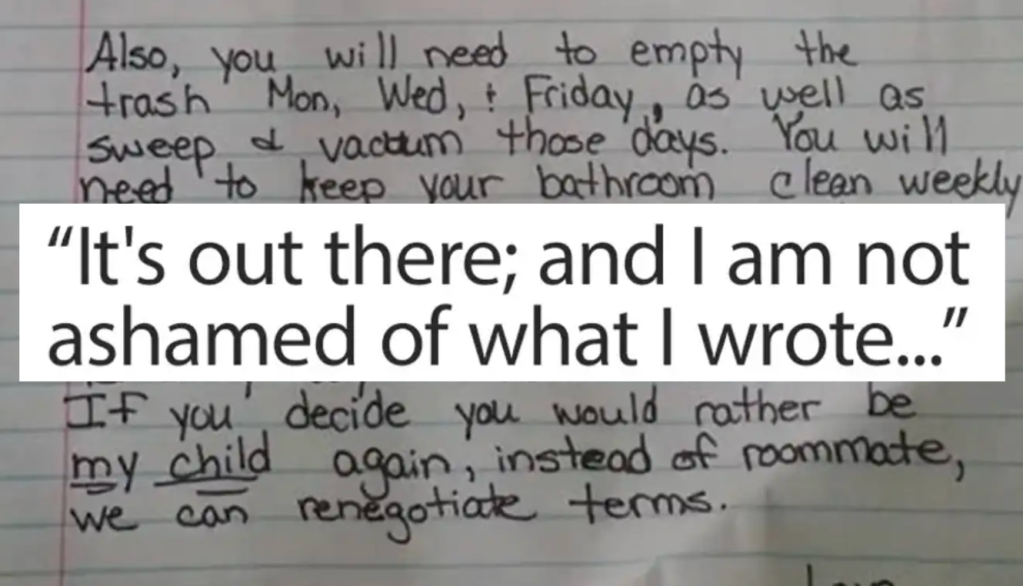 Also, you will need to empty the
trash Mon, Wed, & Friday, as well as
sweep & vacuum those days. You will
need to keep your bathroom clean weekly
“It's out there; and I am not
ashamed of what I wrote...”
If you decide you would rather be
my child again, instead of roommate,
we can renegotiate terms.